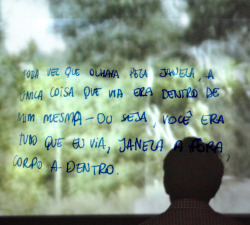 TODA VEZ QUE OLHAVA PELA JANELA, A
ÚNICA COISA QUE VIA ERA DENTRO DE
MIM MESMA – OU SEJA, VOCÊ ERA
TUDO QUE EU VIA, JANELA A FORA,
CORPO A DENTRO.